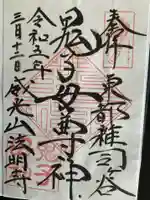 奉拝
東都雑司ヶ谷
鬼子母尊神
令和五年
三月十二日
威光山法明寺